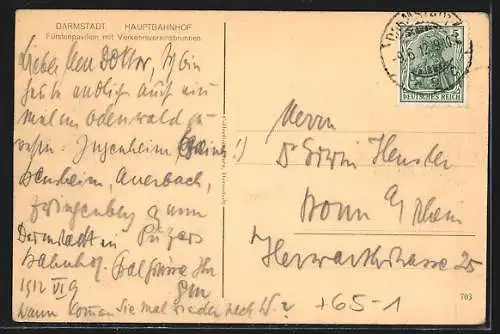 DARMSTADT HAUPTBAHNHOF
Fürstenpavillon mit Verkehrsvereinsbrunnen
Lieber Herr Doktor, ich bin
heute endlich auf ein
mal im Odenwald ge
wesen. Jugenheim
Bensheim, Auerbach,
Zwingenberg zum
Darmstadt in
Bahnhof. Ihr
1912 VI 9
Wann kommen Sie mal wieder nach W.?
5
DEUTSCHES REICH
Herrn
Dr Erwin Hensler
Bonn a/Rhein
Herwarthstrasse 25
+65-1
703